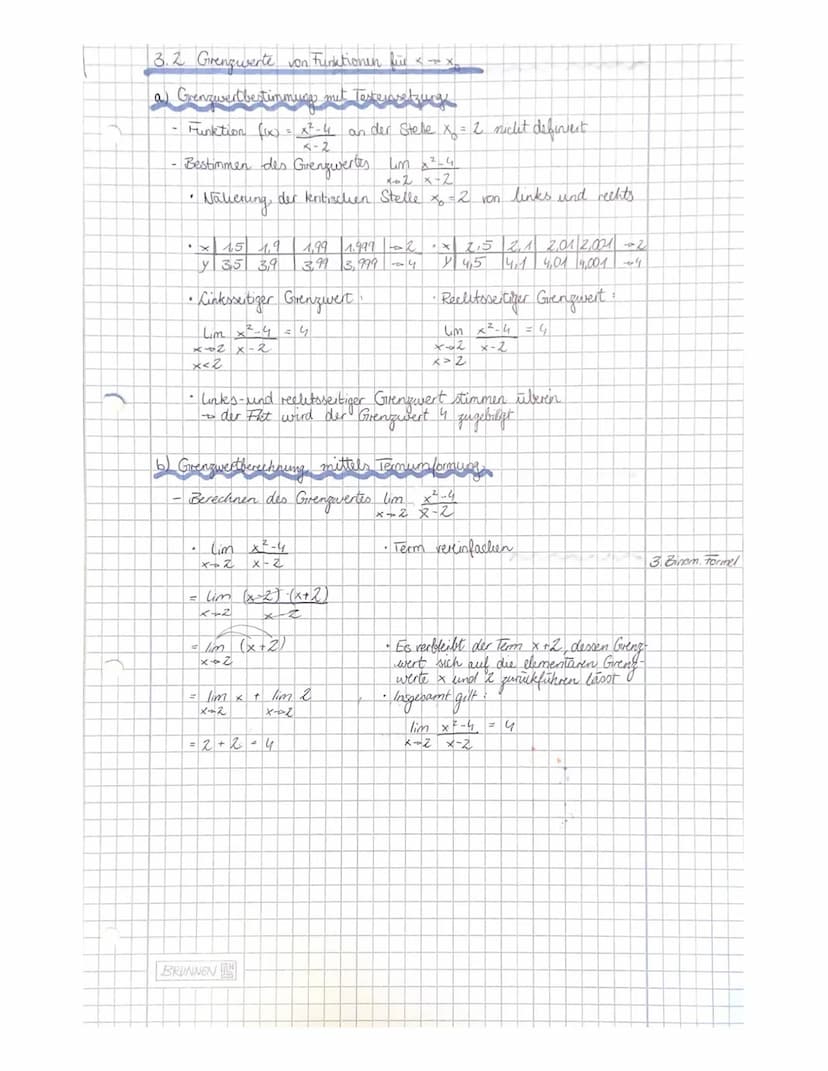 3.2 Grenzwerte von Funktionen für x → x₀
a) Grenzwertbestimmung mit Testeinsetzung
- Funktion f(x) = (x²-4)/(x-2) an der Stelle x₀ = 2 nicht definiert
- Bestimmen des Grenzwertes lim x→2 (x²-4)/(x-2)
• Näherung der kritischen Stelle x₀ = 2 von links und rechts
• x | 1,5 | 1,9 | 1,99 | 1,999 | → 2 • x | 2,5 | 2,1 | 2,01 | 2,001 | → 2
y | 3,5 | 3,9 | 3,99 | 3,999 | → 4 y | 4,5 | 4,1 | 4,01 | 4,001 | → 4
• Linksseitiger Grenzwert: • Rechtsseitiger Grenzwert:
lim x→2 x<2 (x²-4)/(x-2) = 4 lim x→2 x>2 (x²-4)/(x-2) = 4
• Links- und rechtsseitiger Grenzwert stimmen überein
→ der Fkt wird der Grenzwert 4 zugefügt
b) Grenzwertberechnung mittels Termumformung
- Berechnen des Grenzwertes lim x→2 (x²-4)/(x-2)
• lim x→2 (x²-4)/(x-2) • Term vereinfachen
3. Binom. Formel
= lim x→2 (x-2)·(x+2)/(x-2)
= lim x→2 (x+2) • Es verbleibt der Term x+2, dessen Grenz-
wert sich auf die elementaren Grenz-
werte x und 2 zurückführen lässt
= lim x→2 x + lim x→2 2 • Insgesamt gilt:
lim x→2 (x²-4)/(x-2) = 4
= 2 + 2 = 4
BRUNNEN